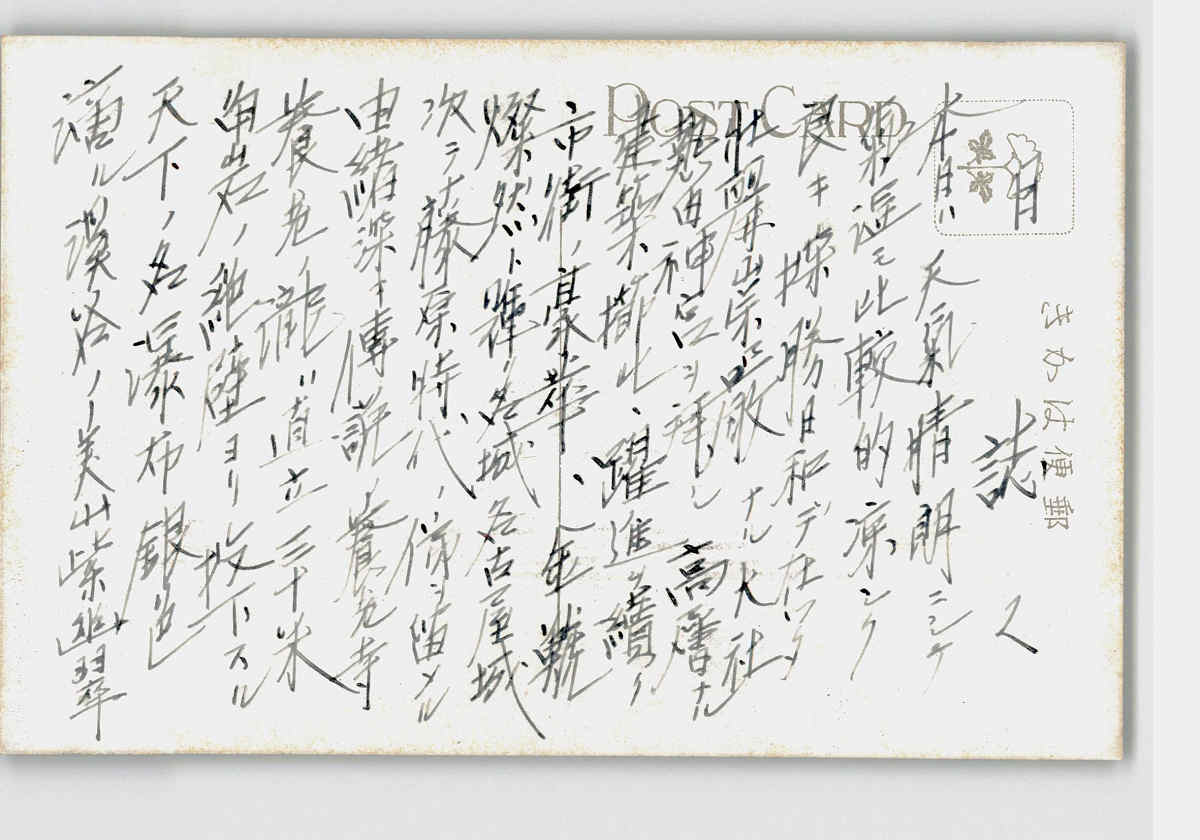 POST CARD
郵便はがき
日誌
本日ハ天気晴朗ニシテ
気温モ比較的涼シク
良キ探勝日和デ在ツタ
壮麗崇厳ナル大社
熱田神宮ヲ拝シ 高層ナル
建築櫛比、躍進ヲ続ク
市街ノ豪華、金鯱
燦然ト輝ク名城名古屋城
次ニ藤原時代ノ俤ヲ留メル
由緒深キ伝説ノ養老寺
養老ノ滝ハ直立三十米
角岩ノ絶壁ヨリ放下スル
天下ノ名瀑布 銀色
渓谷ノ美 山紫 翠